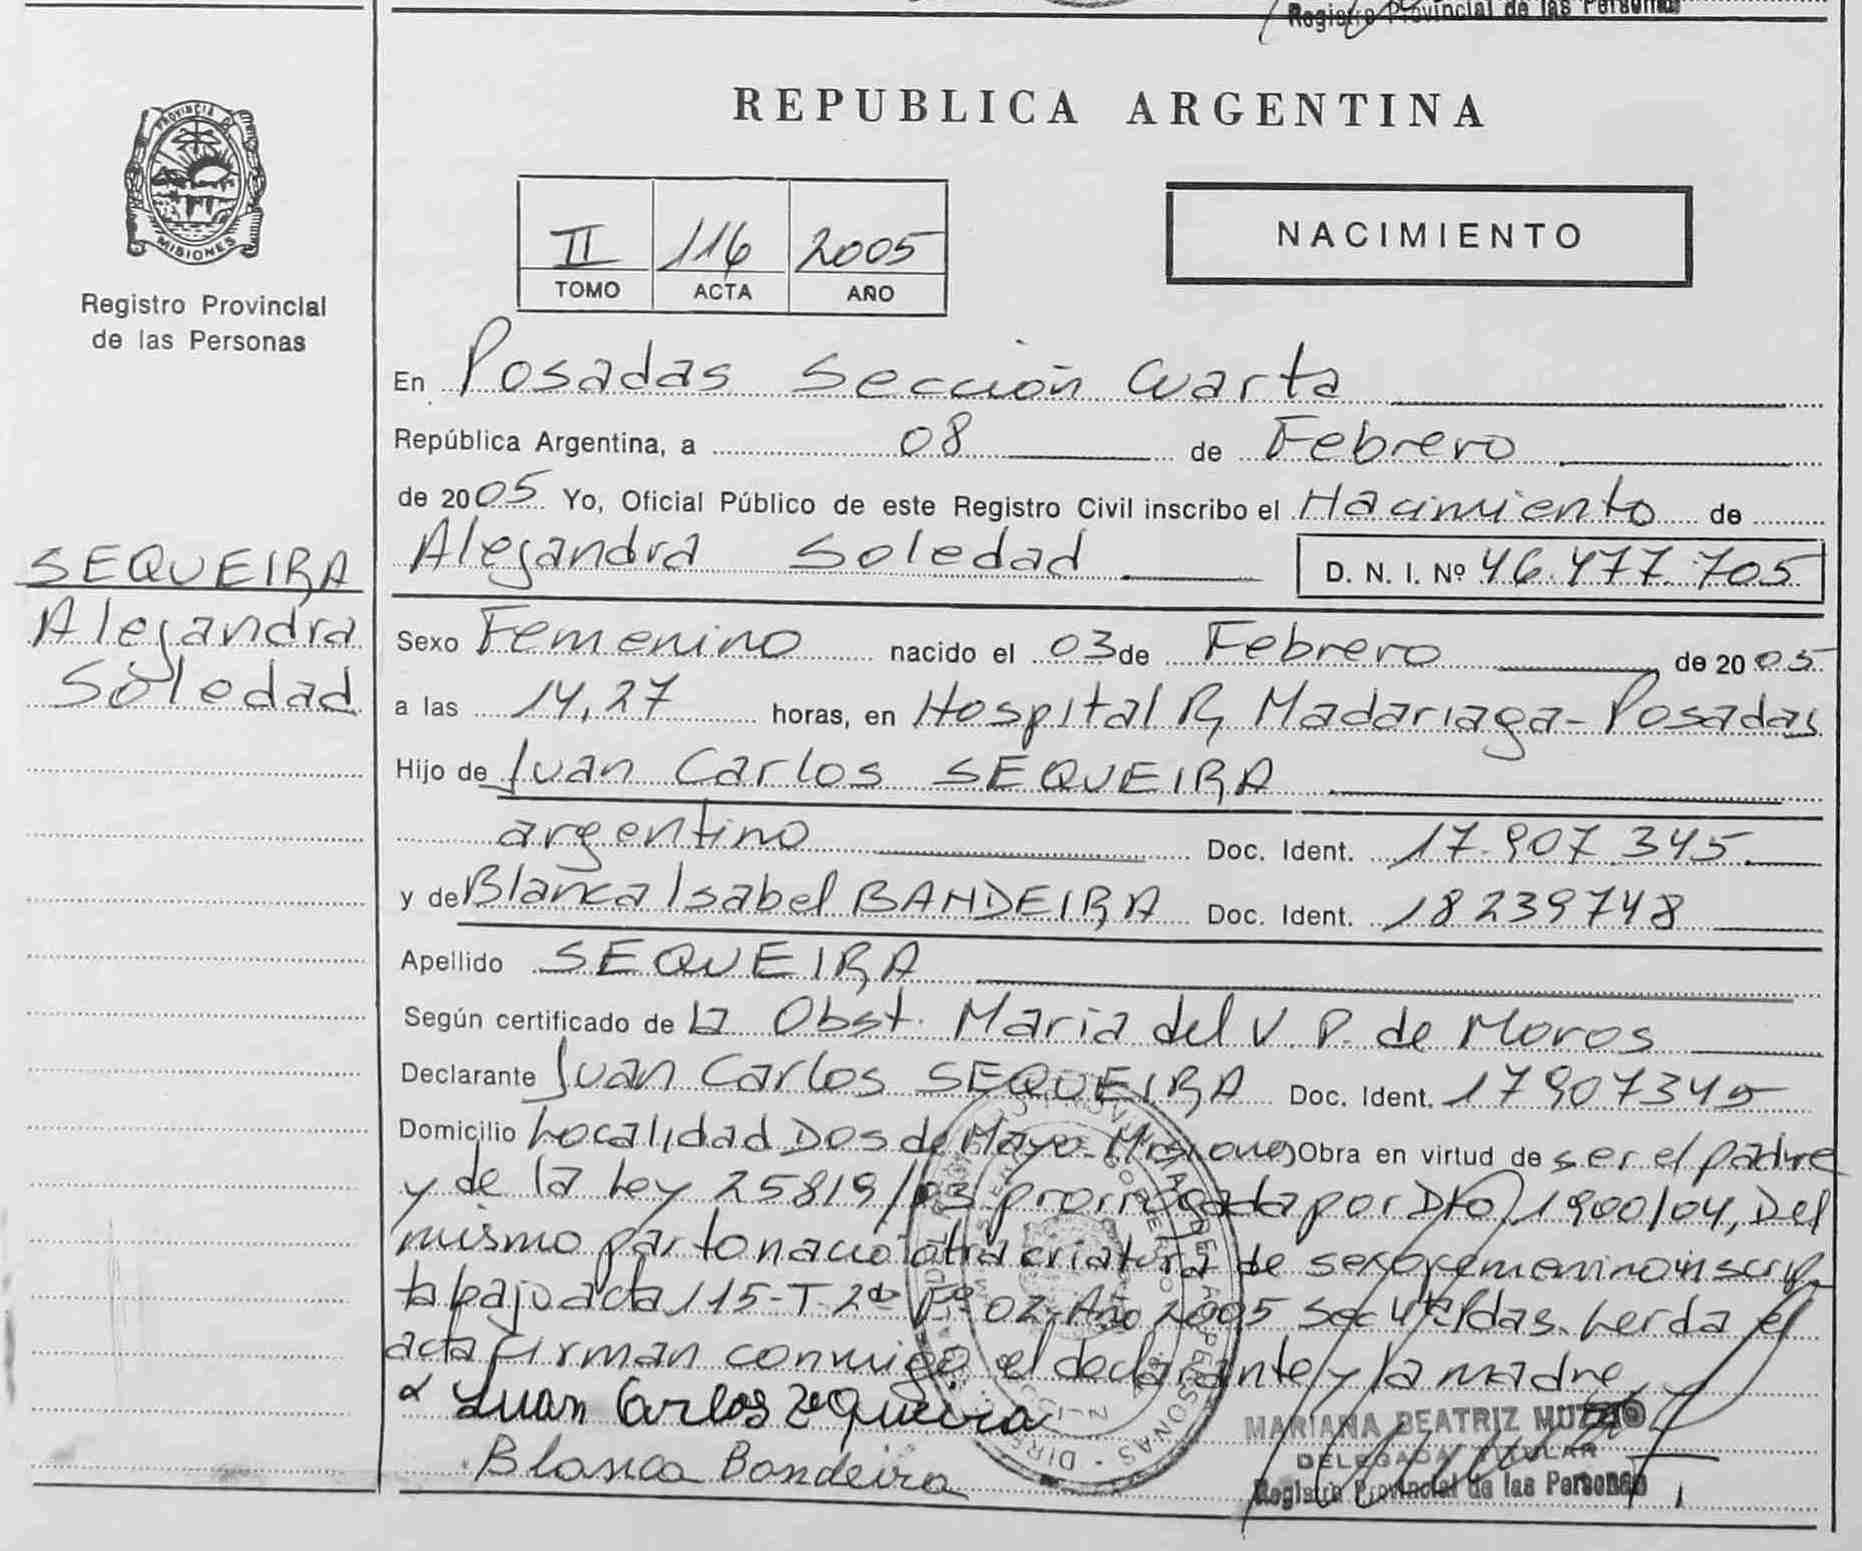 Registro Provincial de las Personas
PROVINCIA D
MISIONES
Registro Provincial
de las Personas
REPUBLICA ARGENTINA
II 116 2005
TOMO ACTA AÑO
NACIMIENTO
En Posadas Sección Cuarta
República Argentina, a 08 de Febrero
de 2005 Yo, Oficial Público de este Registro Civil inscribo el Nacimiento de
Alejandra Soledad D. N. I. Nº 46.477.705
SEQUEIRA
Alejandra
Soledad
Sexo Femenino nacido el 03 de Febrero de 2005
a las 14,27 horas, en Hospital R, Madariaga-Posadas
Hijo de Juan Carlos SEQUEIRA
argentino Doc. Ident. 17.907.345
y de Blanca Isabel BANDEIRA Doc. Ident. 18239748
Apellido SEQUEIRA
Según certificado de la Obst. Maria del V. P. de Moros
Declarante Juan Carlos SEQUEIRA Doc. Ident. 17907345
Domicilio Localidad Dos de Mayo-Misiones Obra en virtud de ser el padre
y de la Ley 25819/03 prorrogada por Dto 1900/04, Del
mismo parto nació otra criatura de sexo femenino inscrip
ta bajo acta 115-T-2do Fº 02-Año 2005 Sec 4ta Pdas. Leída el
acta firman conmigo el declarante y la madre
Juan Carlos Zequeira
Blanca Bandeira
MARIANA BEATRIZ
DELEGADA TITULAR
Registro Provincial de las Personas